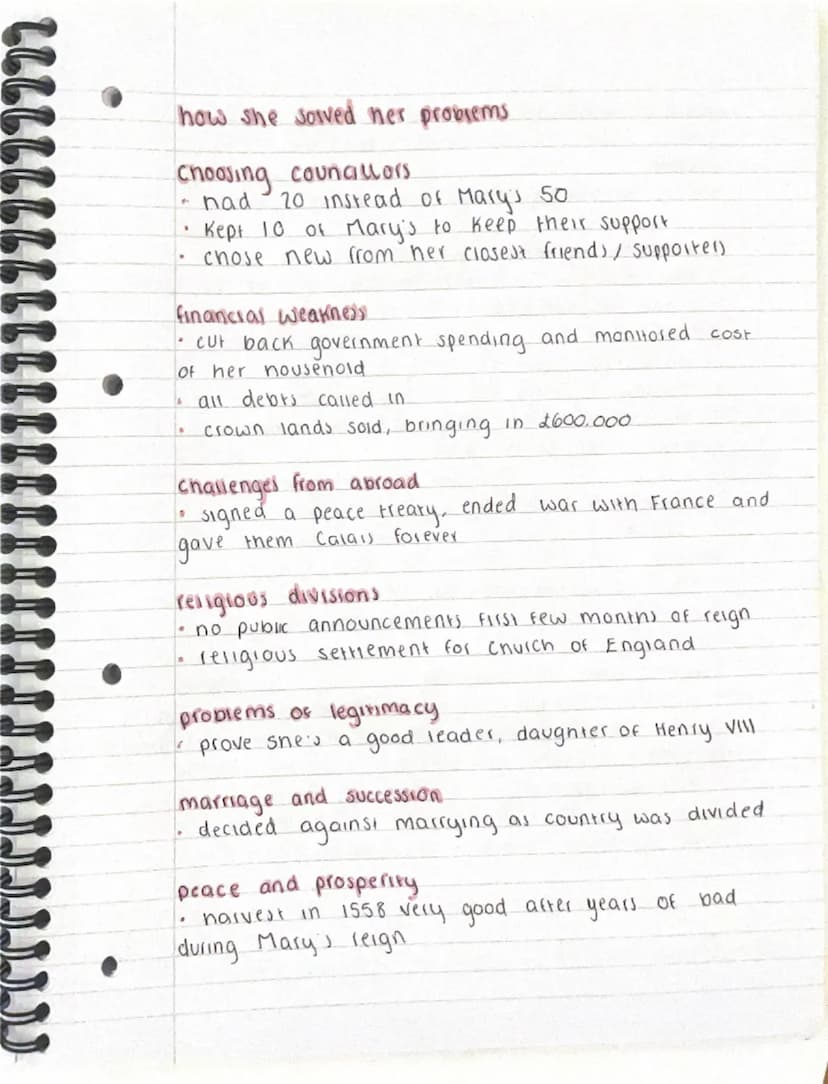 how she solved her problems
choosing councillors
• had 20 instead of Mary's 50
• kept 10 of Mary's to keep their support
• chose new from her closest friends / supporters
financial weakness
• cut back government spending and monitored cost
of her household
• all debts called in
• crown lands sold, bringing in £600,000
challenges from abroad
• signed a peace treaty, ended war with France and
gave them Calais forever
religious divisions
• no public announcements first few months of reign
• religious settlement for Church of England
problems of legitimacy
• prove she's a good leader, daughter of Henry VIII
marriage and succession
• decided against marrying as country was divided
peace and prosperity
• harvest in 1558 very good after years of bad
during Mary's reign